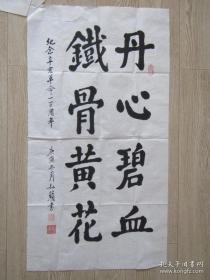 丹心碧血
鐵骨黄花
纪念辛亥革命一百周年